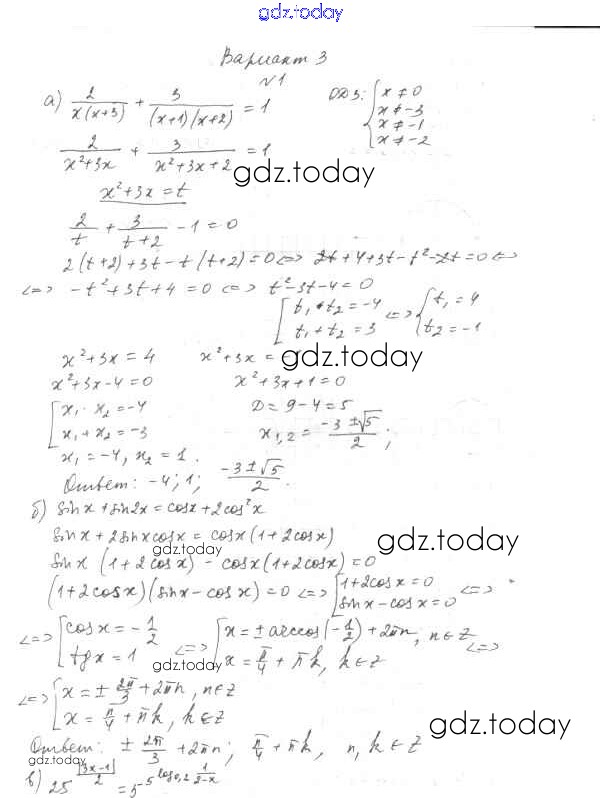 gdz.today
Вариант 3
№1
а) 2/(x(x+3)) + 3/((x+1)(x+2)) = 1   ОДЗ: { x ≠ 0
x ≠ -3
x ≠ -1
x ≠ -2
2/(x²+3x) + 3/(x²+3x+2) = 1
gdz.today
x²+3x = t
2/t + 3/(t+2) - 1 = 0
2(t+2)+3t-t(t+2)=0 <=> 2t+4+3t-t²-2t=0 <=>
<=> -t²+3t+4=0 <=> t²-3t-4=0
[ t₁·t₂=-4 <=> { t₁=4
t₁+t₂=3   t₂=-1
x²+3x=4   x²+3x=-1
gdz.today
x²+3x-4=0   x²+3x+1=0
[ x₁·x₂=-4   D=9-4=5
x₁+x₂=-3   x₁,₂ = (-3±√5)/2;
x₁=-4, x₂=1.
Ответ: -4; 1; (-3±√5)/2.
б) sinx+sin2x=cosx+2cos²x
sinx+2sinxcosx=cosx(1+2cosx)
gdz.today
gdz.today
sinx(1+2cosx)-cosx(1+2cosx)=0
(1+2cosx)(sinx-cosx)=0 <=> [ 1+2cosx=0 <=>
sinx-cosx=0
<=> [ cosx=-1/2 <=> [ x=±arccos(-1/2)+2πn, n∈Z <=>
tgx=1   x=π/4+πk, k∈Z
gdz.today
<=> [ x=±2π/3+2πn, n∈Z
x=π/4+πk, k∈Z
gdz.today
Ответ: ±2π/3+2πn; π/4+πk, n,k∈Z
в) 25^(|3x-1|/2) = 5^(-5^(log₀,₂ 1/(2-x)))
gdz.today